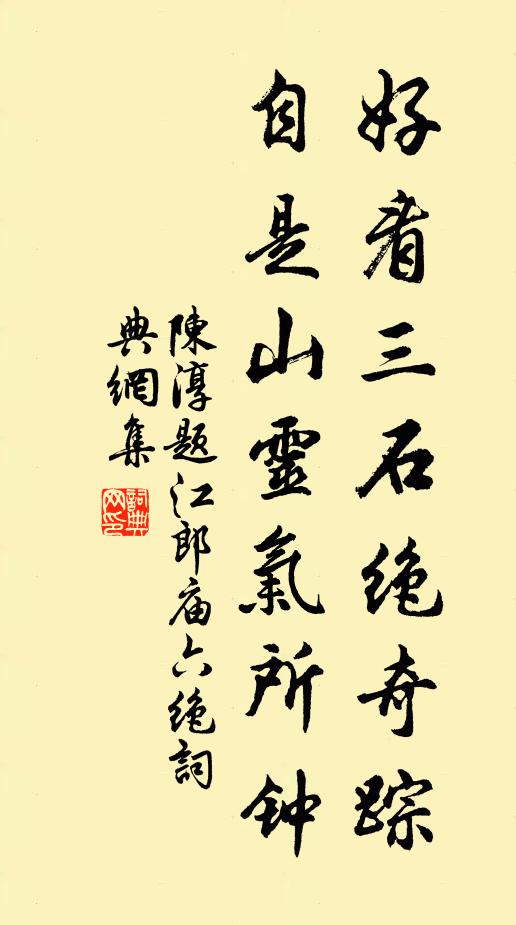 好看三石绝奇踪
自是山靈氣所钟
陳淳题江郎庙六绝詞
典網集
詞典
网印